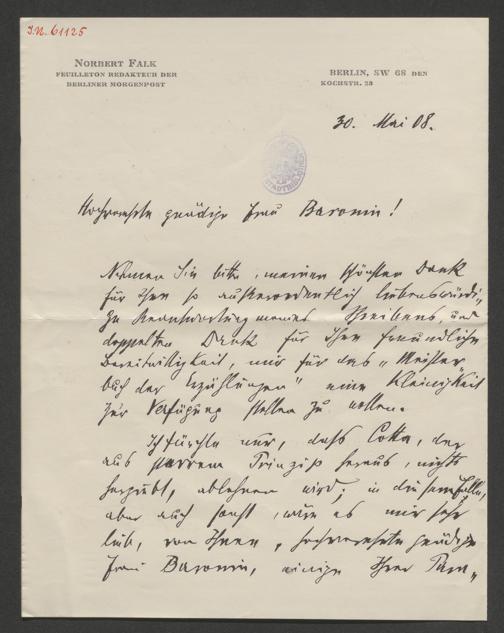 I.N. 61125
NORBERT FALK
FEUILLETON REDAKTEUR DER
BERLINER MORGENPOST
BERLIN, SW 68 DEN
KOCHSTR. 23
30. Mai 08.
Hochverehrte gnädige Frau Baronin!
Nehmen Sie bitte, meinen schönsten Dank
für Ihre so außerordentlich liebenswürdi-
ge Beantwortung meines Schreibens, und
doppelten Dank für Ihre freundliche
Bereitwilligkeit, mir für das „Meister-
buch der Erzählungen" eine Kleinigkeit
zur Verfügung stellen zu wollen.
Ich fürchte nur, daß Cotta, der
aus starrem Prinzip heraus, nichts
hergibt, ablehnen wird; in diesem Falle,
aber auch sonst, wäre es mir sehr
lieb, von Ihnen, hochverehrte gnädige
Frau Baronin, einige Ihrer Para-